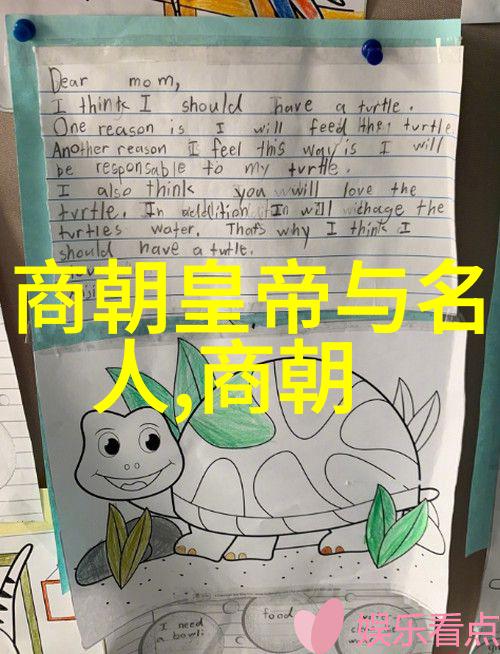 Dear mom,
I think I should have a turtle.
One reason is I will feed the turtle.
Another reason I feel this way is I will
be responsable to my turtle.
I also think you will love the
turtle. In addition I will chage the
turtles water. Thats why I think I
should have a turtle.
商朝皇帝与名
人,商朝
I need
a bowl
food
娱乐看点